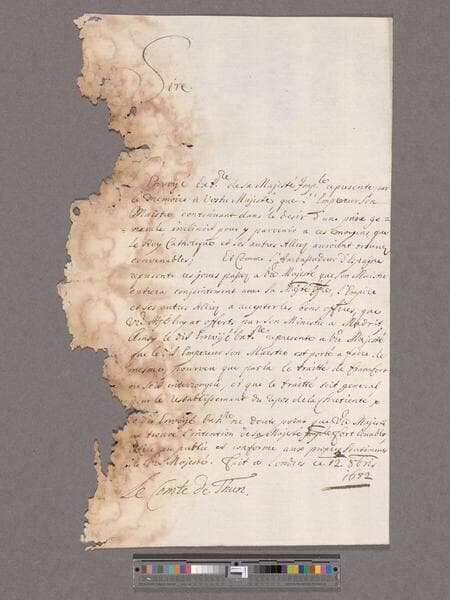 Sire
Envoyé Ext.re de sa Majesté Imp.le represente par
ce Memoire à Vostre Majesté que l'Empereur Son
Maistre continuant dans le desir d'une paix ge
nerale inclineroit pour y parvenir a ces moyens que
le Roy Catholique et ses autres Alliez auroient trouvez
convenables; Et Comme l'Ambassadeur d'Espagne
represente ces jours passez a V.re Majesté que son Maistre
entrera conjointement avec sa l'Empire
et ses autres Alliez a accepter les bons offices, que
V.re M.té luy at offerts par son Ministre a Madrid,
Ainsy le dit Envoyé Ext.re represente a V.re Majesté
que le dit Empereur son Maistre est porté a faire le
mesme, pourveu que par la le traitté de francfort
ne soit interrompu, et que le traitté soit general
pour le restablissement du repos de la Chretienté
Envoyé Ext.re ne doute point que V.re Majesté
ne trouve l'intention de sa Majesté Imp.le fort
au public et conforme aux propres Sentimens
de V.re Majesté. Fait a Londres ce 12. 8bres
1682
Le Comte de Thun.